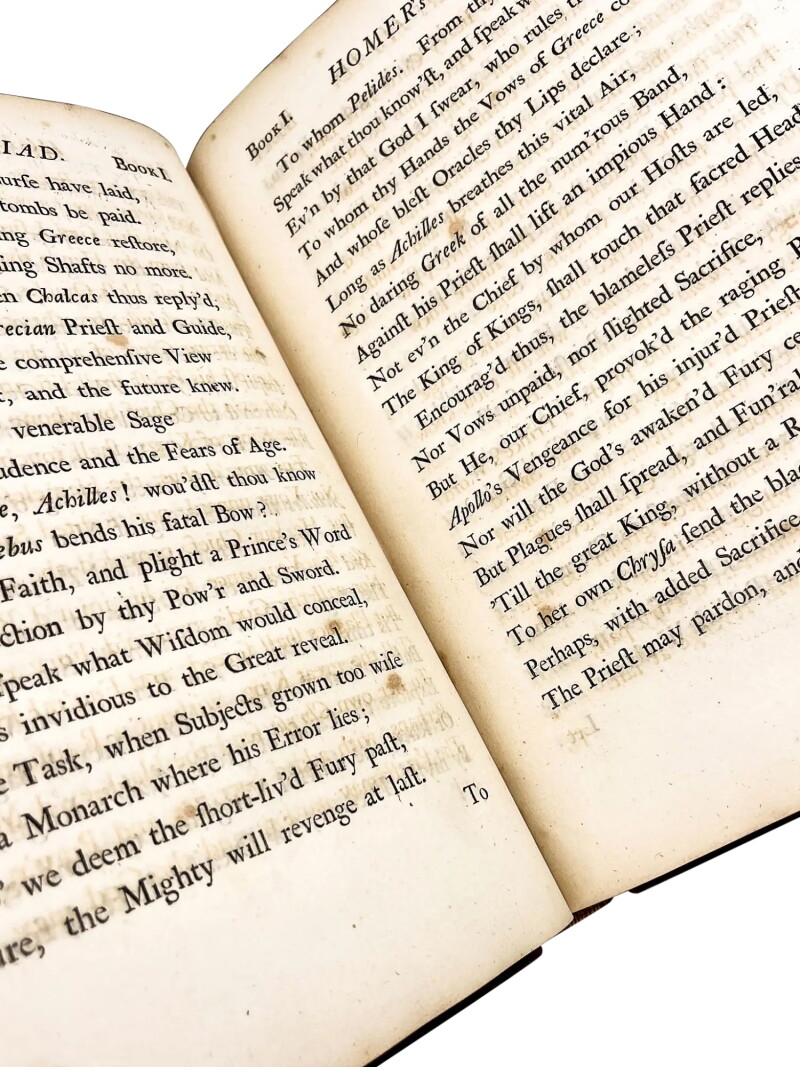 IAD. BOOK I.
urſe have laid,
tombs be paid.
ing Greece reſtore,
ing Shafts no more.
en Chalcas thus reply'd;
recian Prieſt and Guide,
e comprehenſive View
, and the future knew.
venerable Sage
udence and the Fears of Age.
e, Achilles! wou'dſt thou know
ebus bends his fatal Bow?
Faith, and plight a Prince's Word
ction by thy Pow'r and Sword.
ſpeak what Wiſdom would conceal,
s invidious to the Great reveal.
e Task, when Subjects grown too wiſe
a Monarch where his Error lies;
we deem the ſhort-liv'd Fury paſt,
ure, the Mighty will revenge at laſt.
To
BOOK I. HOMER's
To whom Pelides. From thy
Speak what thou know'ſt, and ſpeak w
Ev'n by that God I ſwear, who rules t
To whom thy Hands the Vows of Greece co
And whoſe bleſt Oracles thy Lips declare;
Long as Achilles breathes this vital Air,
No daring Greek of all the num'rous Band,
Againſt his Prieſt ſhall lift an impious Hand:
Not ev'n the Chief by whom our Hoſts are led,
The King of Kings, ſhall touch that ſacred Head
Encourag'd thus, the blameleſs Prieſt replies
Nor Vows unpaid, nor ſlighted Sacrifice,
But He, our Chief, provok'd the raging P
Apollo's Vengeance for his injur'd Prieſt
Nor will the God's awaken'd Fury ce
But Plagues ſhall ſpread, and Fun'ral
'Till the great King, without a R
To her own Chryſa ſend the blac
Perhaps, with added Sacrifice
The Prieſt may pardon, and